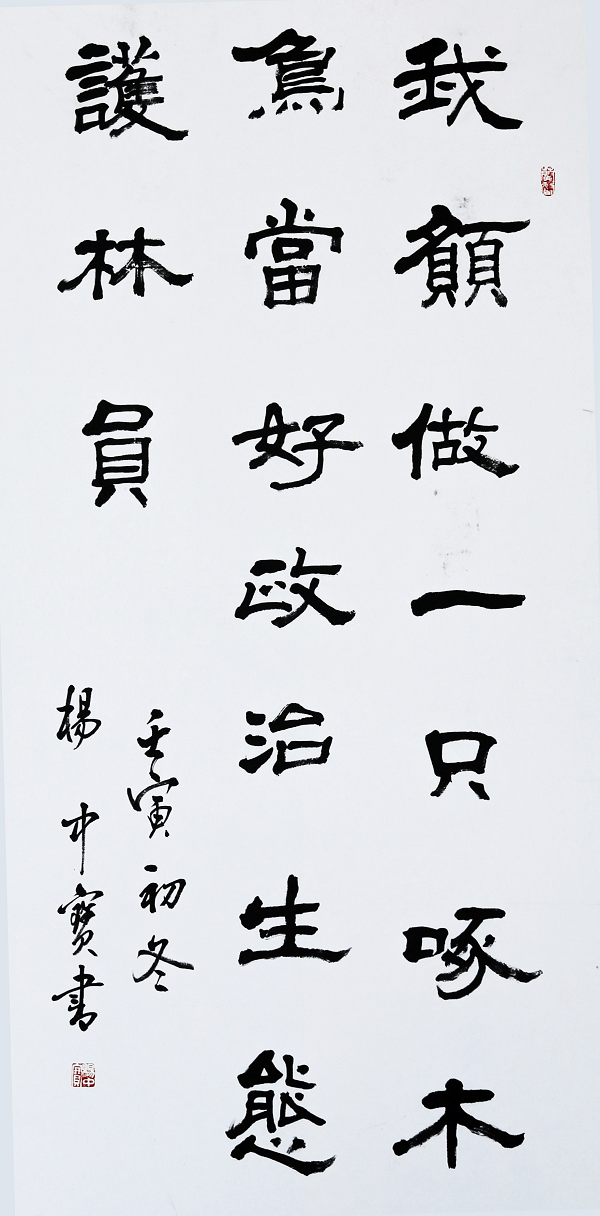 我願做一只啄木
鳥當好政治生態
護林員
壬寅初冬
楊中寳書